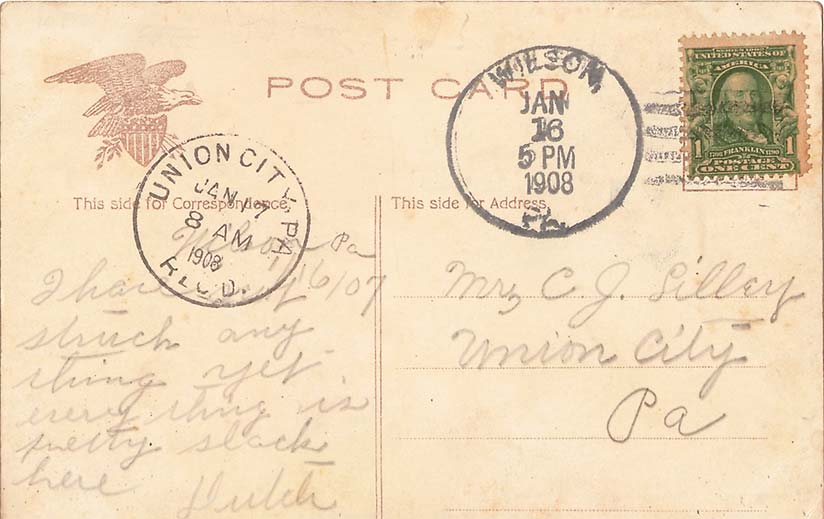 POST CARD
WILSON,
JAN
16
5 PM
1908
PA.
SERIES 1902
UNITED STATES OF
AMERICA
1 1790 FRANKLIN 1790 1
POSTAGE
ONE CENT
UNION CITY, PA.
JAN 17
8 AM
1908
REC'D.
This side for Correspondence.
This side for Address.
Wilson Pa
1/16/07
I have not
struck any
thing yet
every thing is
pretty slack
here Dutch
Mrs C. J. Silley
Union City
Pa